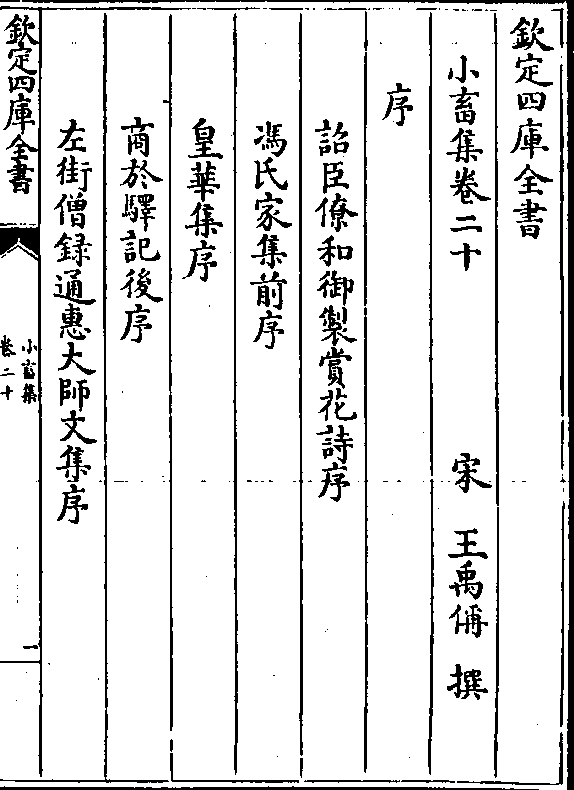 欽定四庫全書
小畜集卷二十 宋 王禹偁 撰
序
詔臣僚和御製賞花詩序
馮氏家集前序
皇華集序
商於驛記後序
左街僧録通惠大師文集序
欽定四庫全書
小畜集
卷二十
一